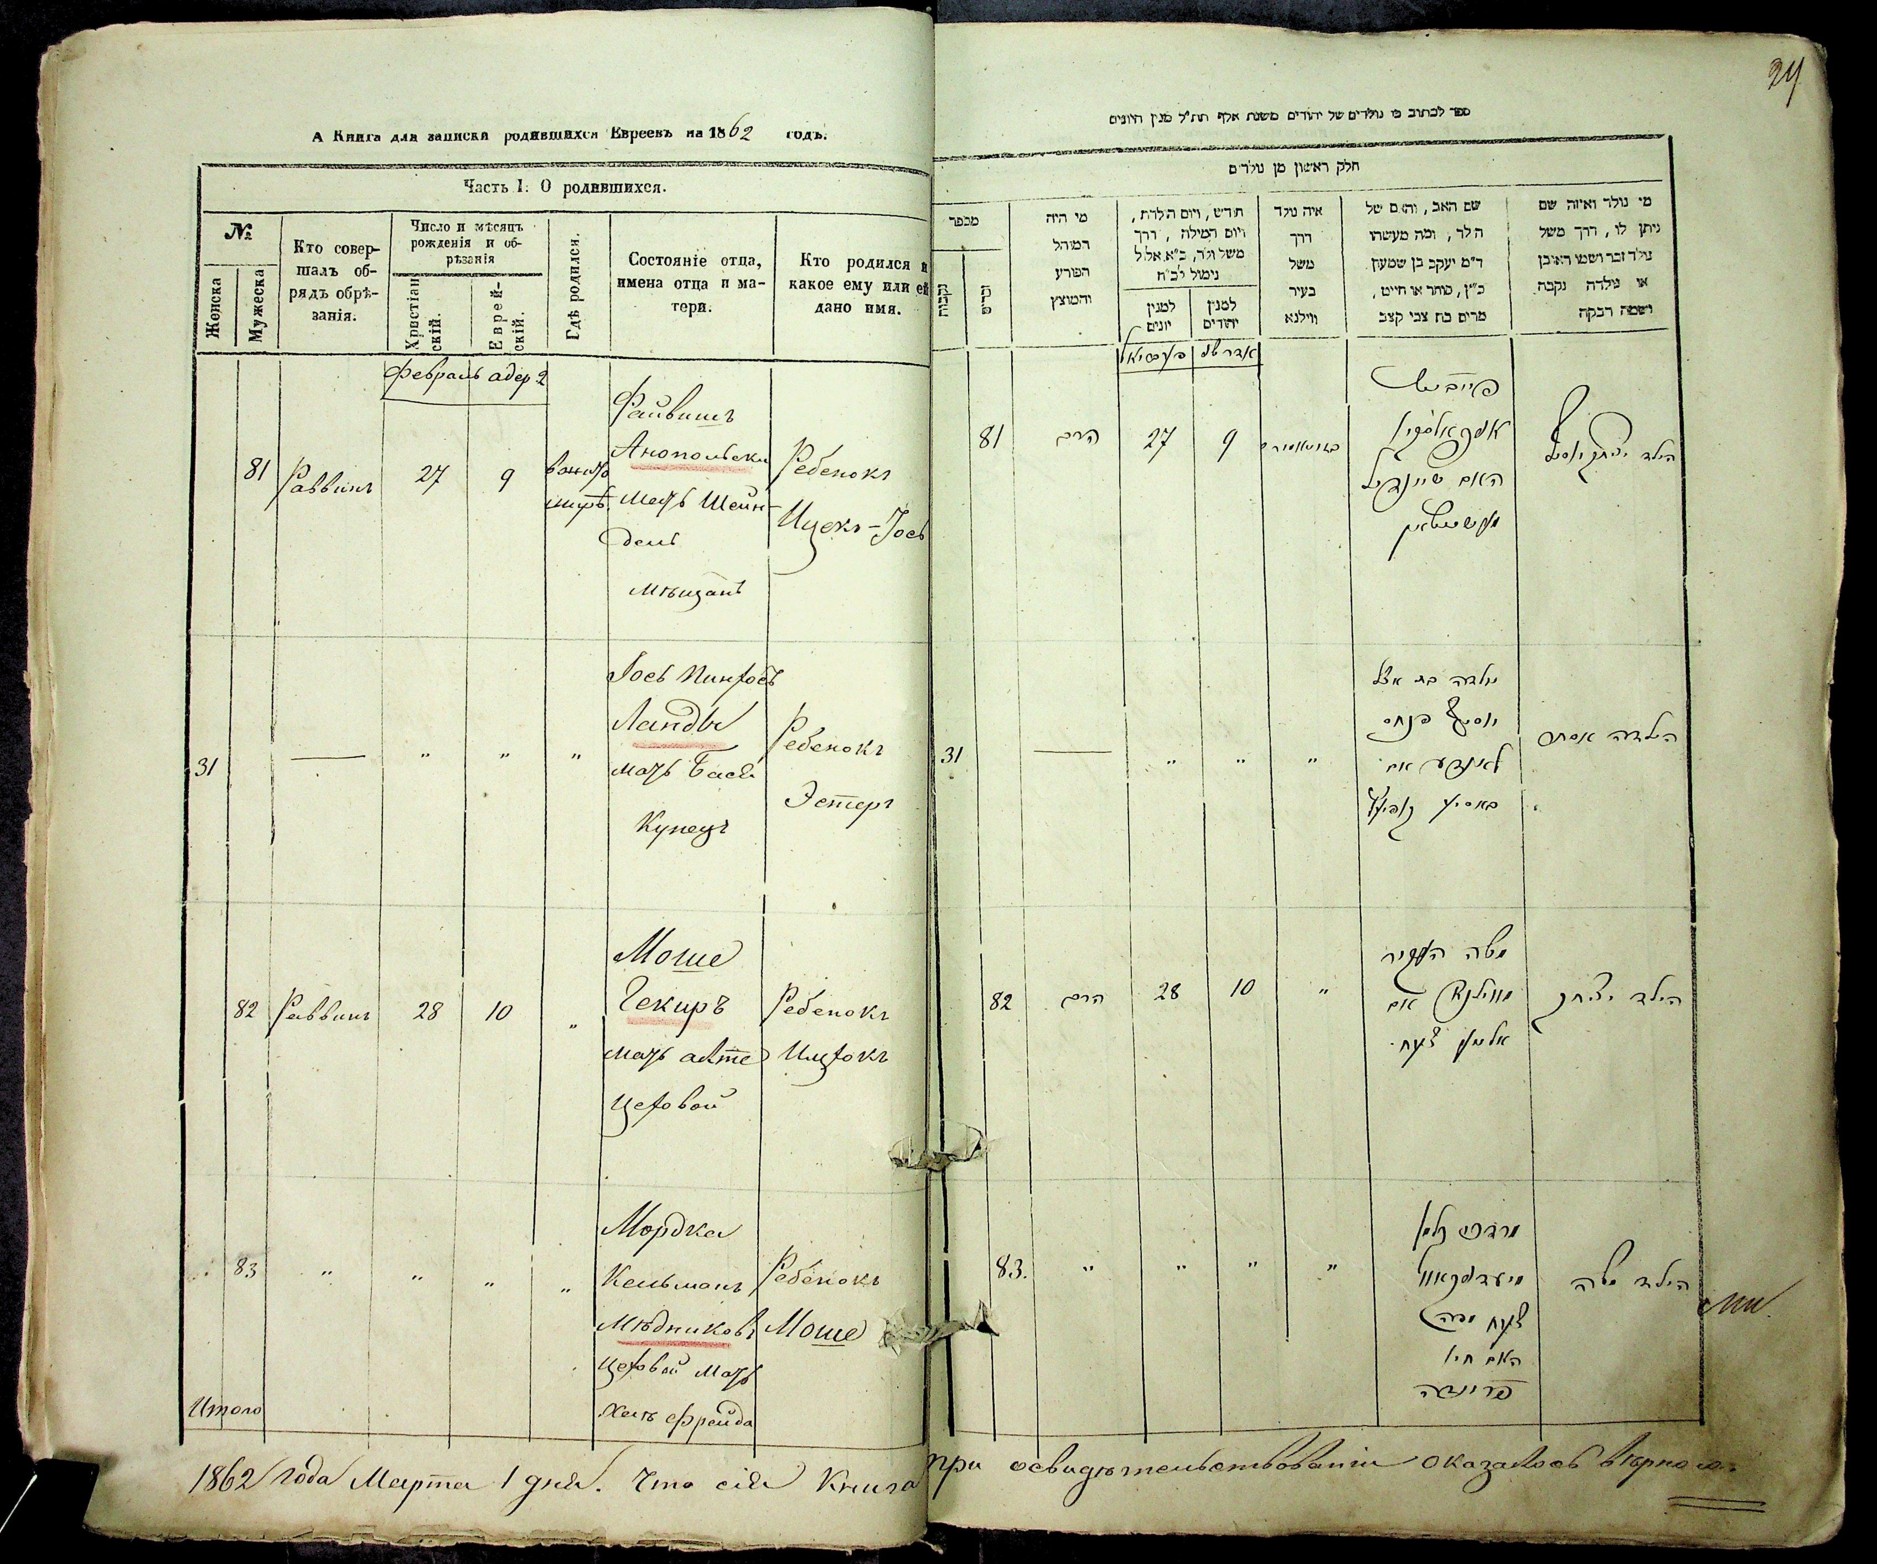 А Книга для записки родившихся Евреевъ на 1862 годъ.
Часть I. О родившихся.
№
Женска
Мужеска
Кто совер-
шалъ об-
рядъ обрѣ-
занія.
Число и мѣсяцъ
рожденія и об-
рѣзанія
Христіан
скій.
Еврей-
скій.
Гдѣ родился.
Состояніе отца,
имена отца и ма-
тери.
Кто родился и
какое ему или ей
дано имя.
Февраль адер 2
81
Раввинъ
27
9
Файвишъ
Анопольски
мать Шейн-
дель
мѣщанъ
Ребенокъ
Ицекъ-Іось
31
—
"
"
"
Іось Пинхосъ
Ланды
мать Бася
Купецъ
Ребенокъ
Эстеръ
82
Раввинъ
28
10
"
Моше
Чекиръ
мать алте
цеховой
Ребенокъ
Ицхокъ
83
"
"
"
"
Мордка
Кельманъ
Мѣдниковъ
цеховой мать
Хая Фрейда
Ребенокъ
Моше
Итого
1862 года Марта 1 дня. Что сія Книга при освидѣтельствованіи оказалось вѣрною.
24
ספר לכתוב בו נולדים של יהודים משנת אלף תת"ל מנין היונים
חלק ראשון מן נולדים
מי נולד ואיזה שם
ניתן לו, דרך משל
נולד זכר ושמו ראובן
או נולדה נקבה
ושמה רבקה
שם האב, והאם של
הלד, ומה מעשהו
ד"מ יעקב בן שמעון
כ"ץ, סוחר או חייט,
מרים בת צבי קצב
איה נולד
דרך
משל
בעיר
ווילנא
חודש, ויום הולדת,
ויום המילה, דרך
משל נולד, כ"א אלול
נימול כ"ח
למנין
יהודים
למנין
יונים
מי היה
המוהל
הפורע
והמוצץ
מספר
זכרים
נקבות
81
הרב
27
9
פייביש
האם שיינדיל
הילד יצחק יוסף
31
—
"
"
"
נולדה בת אצל
יוסף פנחס
לאנדע אם
הילדה אסתר
82
הרב
28
10
"
משה
הילד יצחק
83.
"
"
"
"
האם חיה
פריידא
הילד משה